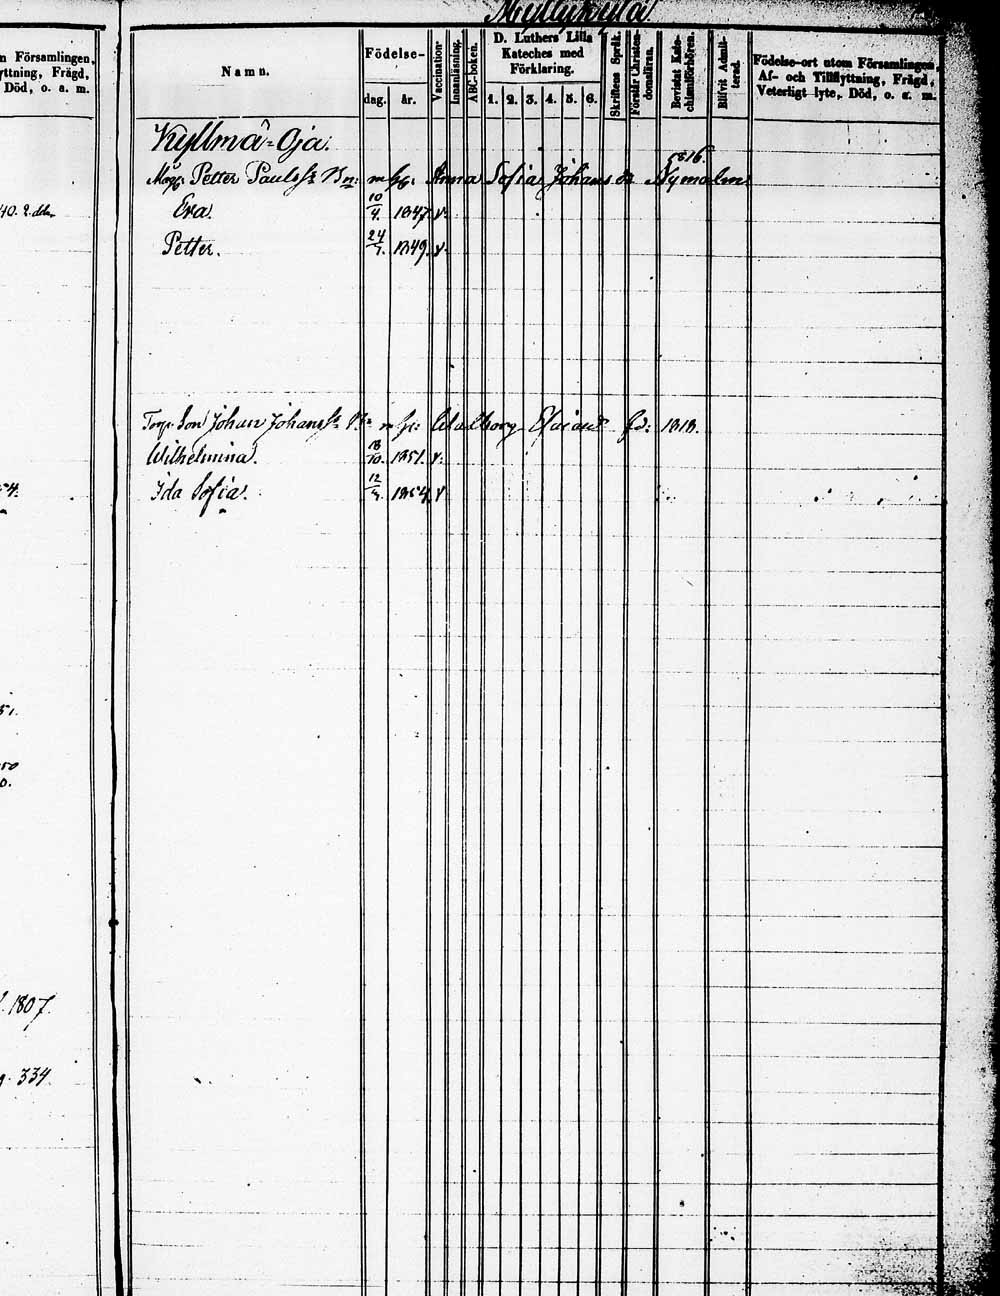 Myllykylä
n Församlingen,
yttning, Frägd,
Död, o. a. m.
40. 2.dtr
54.
51.
50
0.
1807.
334.
Namn.
Födelse-
dag. år.
Vaccination.
Innanläsning.
ABC-boken.
D. Luthers Lilla
Kateches med
Förklaring.
1. 2. 3. 4. 5. 6.
Skriftens Språk.
Förstår Christen-
domsläran.
Bevistat Kate-
chismiförhören.
Blifvit Admit-
terad.
Födelse-ort utom Församlingen,
Af- och Tillflyttning, Frägd,
Veterligt lyte, Död, o. s. m.
Kyllmä-Oja.
1816.
Petter Paulss: Bn: m hu: Anna Sofia Johans dr Nymalm
Eva. 10/4. 1847. v.
Petter. 24/7. 1849. v.
Torp. Son Johan Johanss: Bn m hu: Walborg Esaiasd fd: 1818.
Wilhelmina. 18/10. 1851. v.
Ida Sofia. 12/4. 1854. v